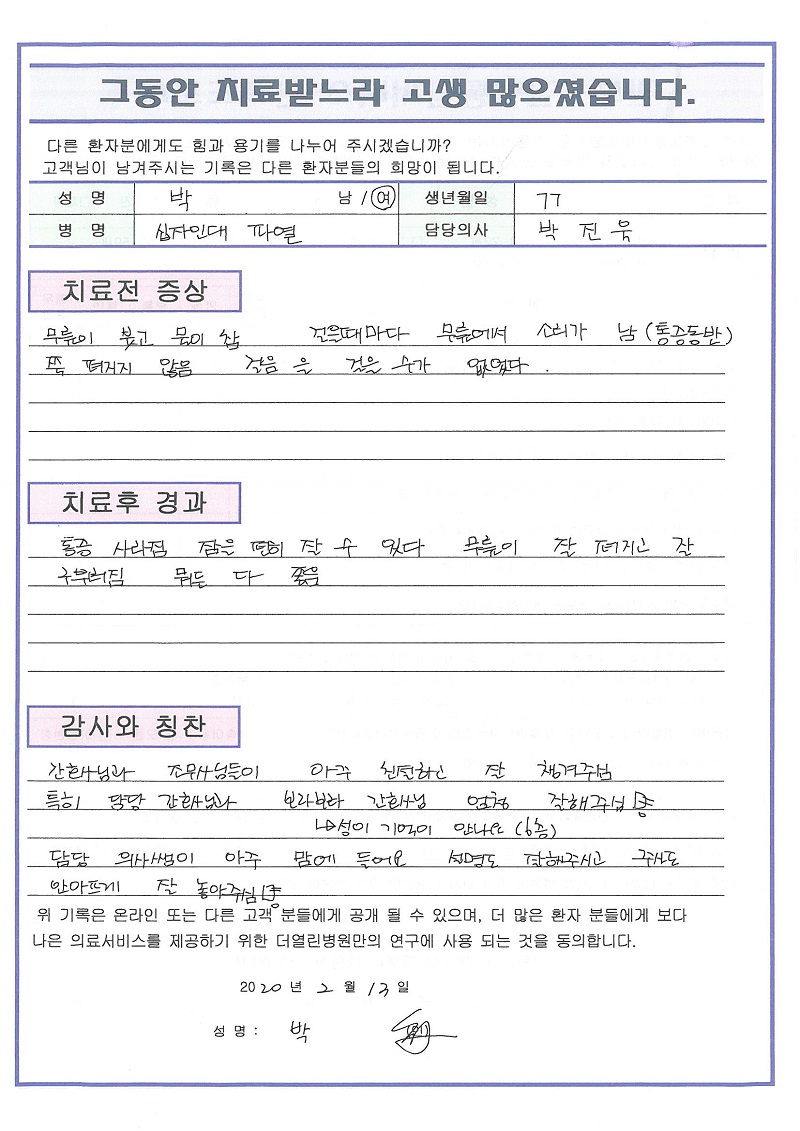 그동안 치료받느라 고생 많으셨습니다.
다른 환자분에게도 힘과 용기를 나누어 주시겠습니까?
고객님이 남겨주시는 기록은 다른 환자분들의 희망이 됩니다.
성 명 박 남 / 여 생년월일 77
병 명 십자인대 파열 담당의사 박 진 욱
치료전 증상
무릎이 붓고 물이 참 걸을때마다 무릎에서 소리가 남 (통증동반)
쭉 펴지지 않음 걸음 을 걸을 수가 없었다.
치료후 경과
통증 사라짐 잠은 편히 잘 수 있다 무릎이 잘 펴지고 잘
구부러짐 뭐든 다 좋음
감사와 칭찬
간호사님과 조무사님들이 아주 친절하고 잘 챙겨주님
특히 담당 간호사님과 보라보라 간호사님 엄청 잘해주님
↳성이 기억이 안나요 (6층)
담당 의사쌤이 아주 맘에 들어요 설명도 잘해주시고 주사도
안아프게 잘 놓아주님
위 기록은 온라인 또는 다른 고객 분들에게 공개 될 수 있으며, 더 많은 환자 분들에게 보다
나은 의료서비스를 제공하기 위한 더열린병원만의 연구에 사용 되는 것을 동의합니다.
2020 년 2 월 13 일
성 명 : 박